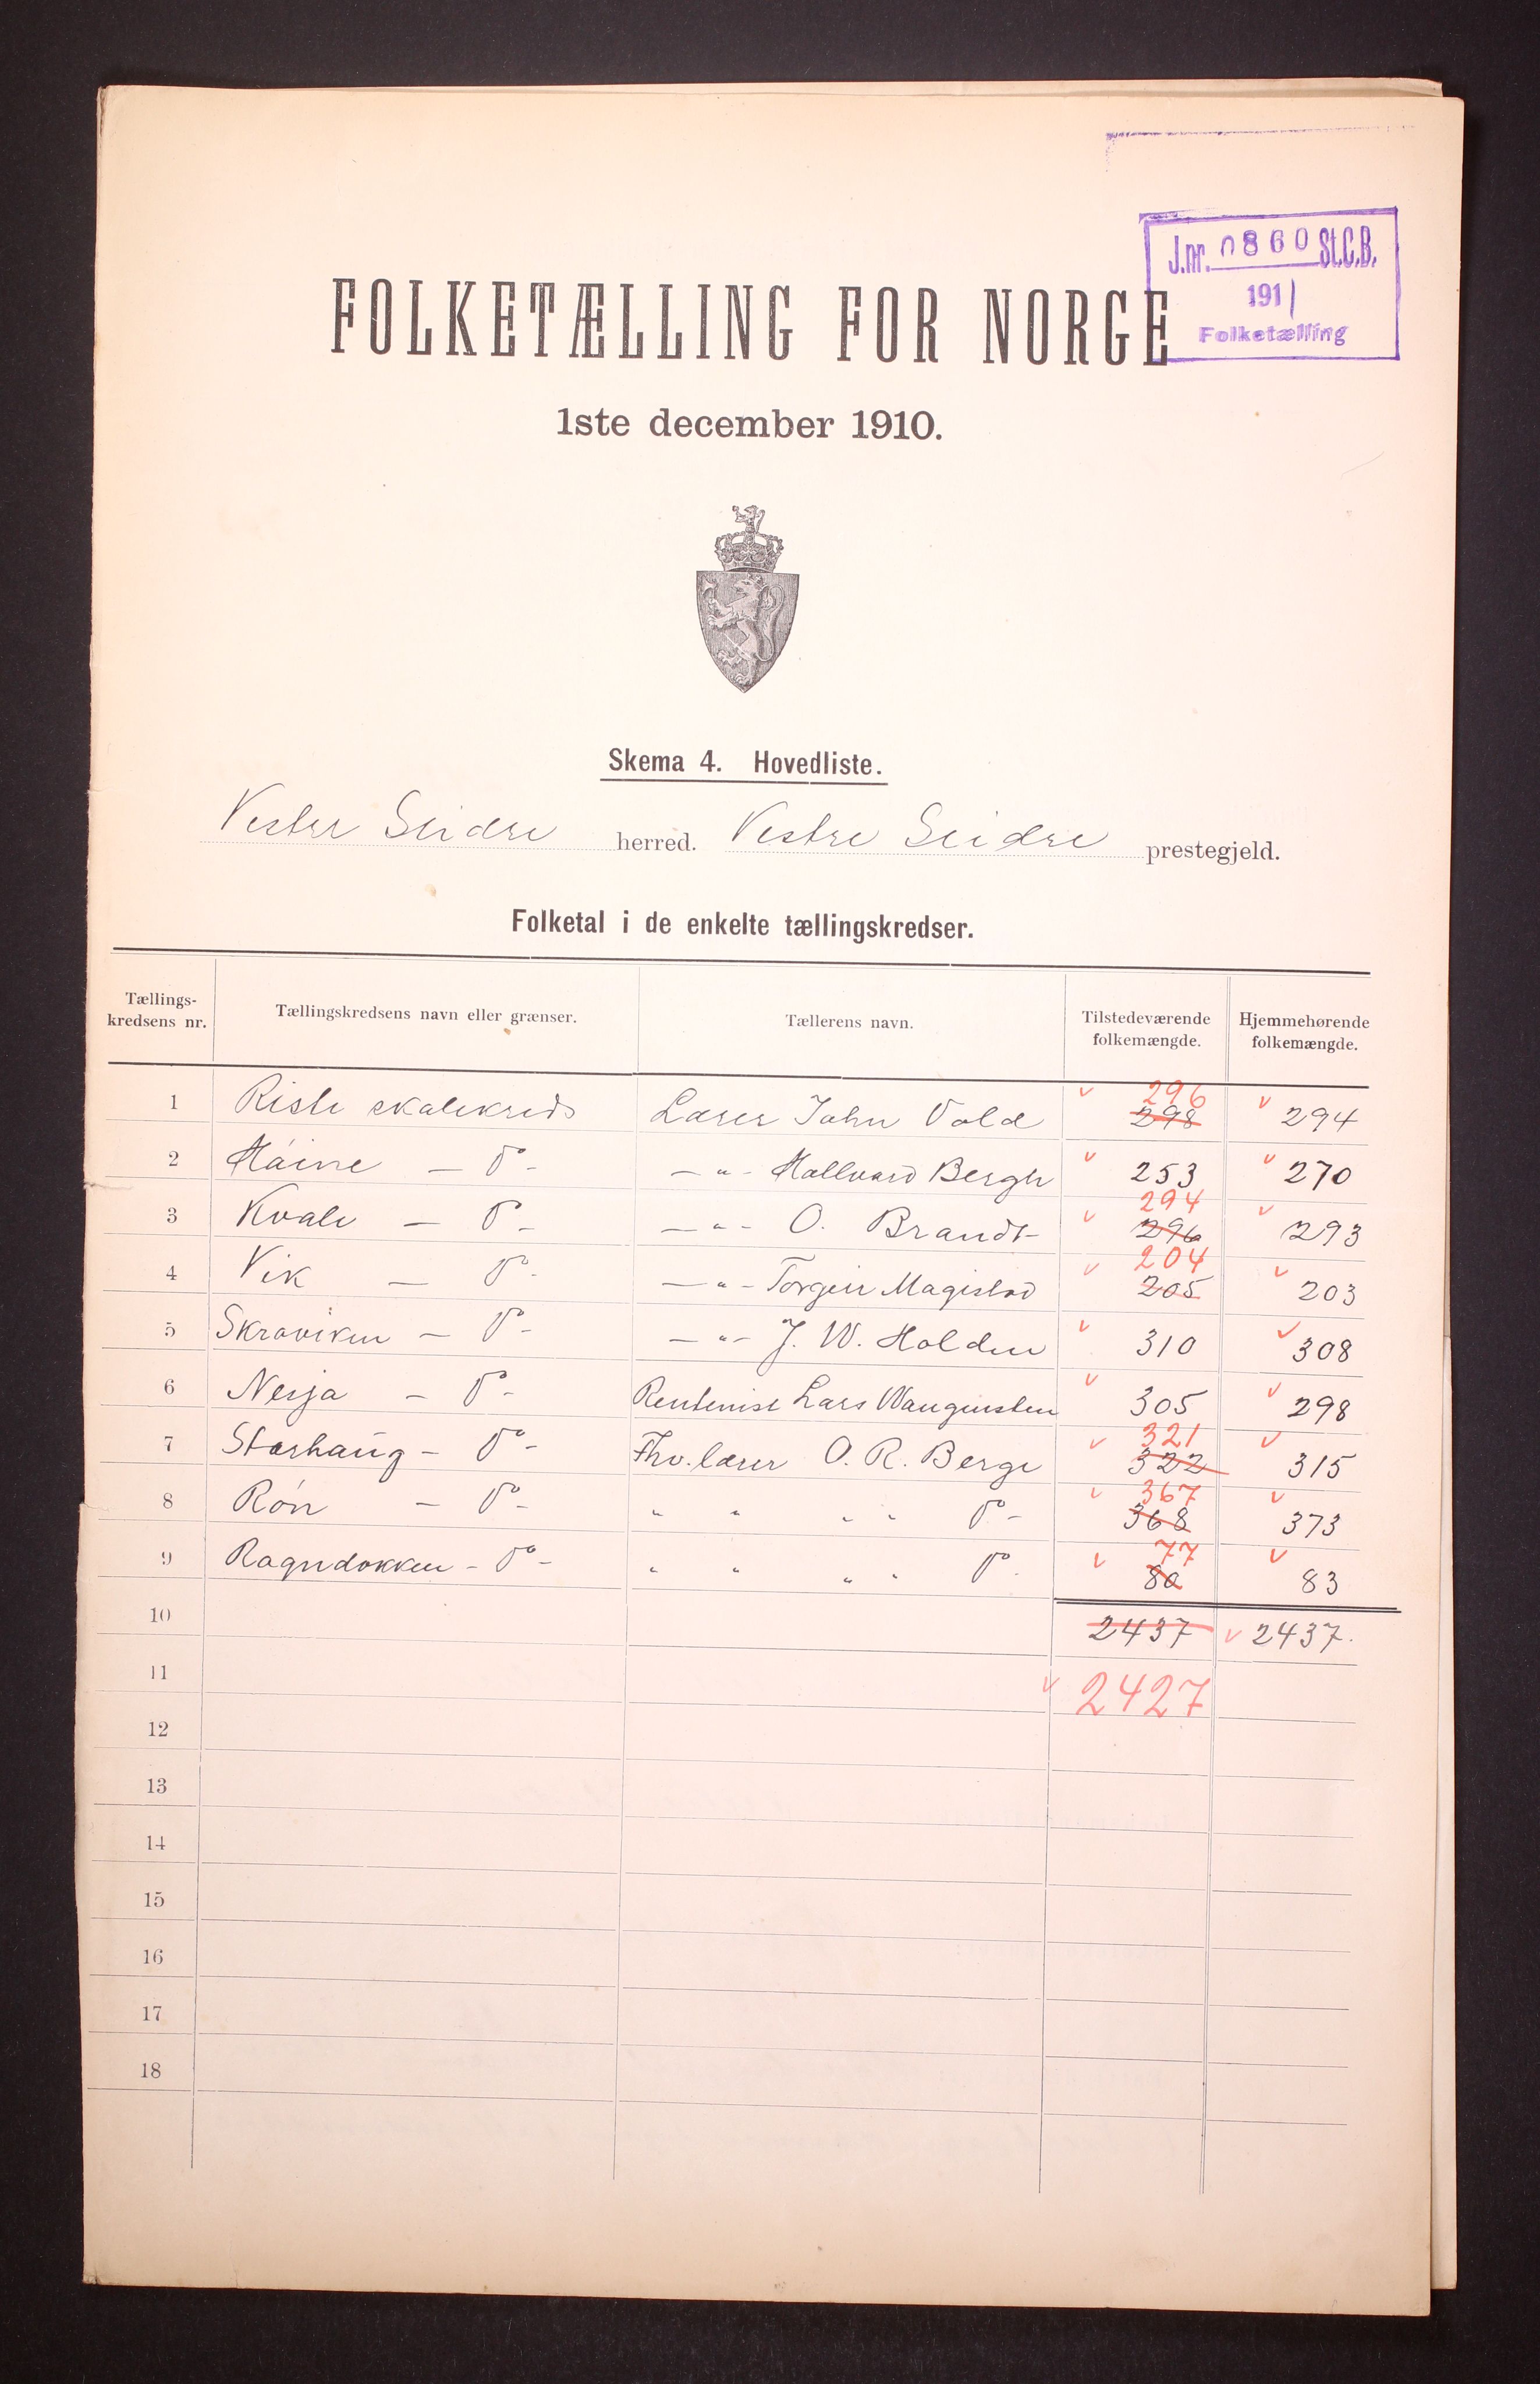 J.nr. 0860 St.C.B.
191|
Folketælling
FOLKETÆLLING FOR NORGE
1ste december 1910.
Skema 4. Hovedliste.
Vestre Slidre herred. Vestre Slidre prestegjeld.
Folketal i de enkelte tællingskredser.
Tællings-kredsens nr. Tællingskredsens navn eller grænser. Tællerens navn. Tilstedeværende folkemængde. Hjemmehørende folkemængde.
1 Riste skolekreds Lærer John Vold 298 296 294
2 Høine — do - — " - Hallvard Bergh 253 270
3 Kvale — do - — " - O. Brandt 296 294 293
4 Vik — do - — " - Torgeir Magistad 205 204 203
5 Skraviken — do - — " - J. W. Holden 310 308
6 Nesja — do - Rentenist Lars Wangensten 305 298
7 Storhaug — do - Fhv. lærer O. R. Berge 322 321 315
8 Røn — do - " " " " do - 368 367 373
9 Ragndokken - do - " " " " do - 80 77 83
10 2437 2437.
11 2427
12
13
14
15
16
17
18